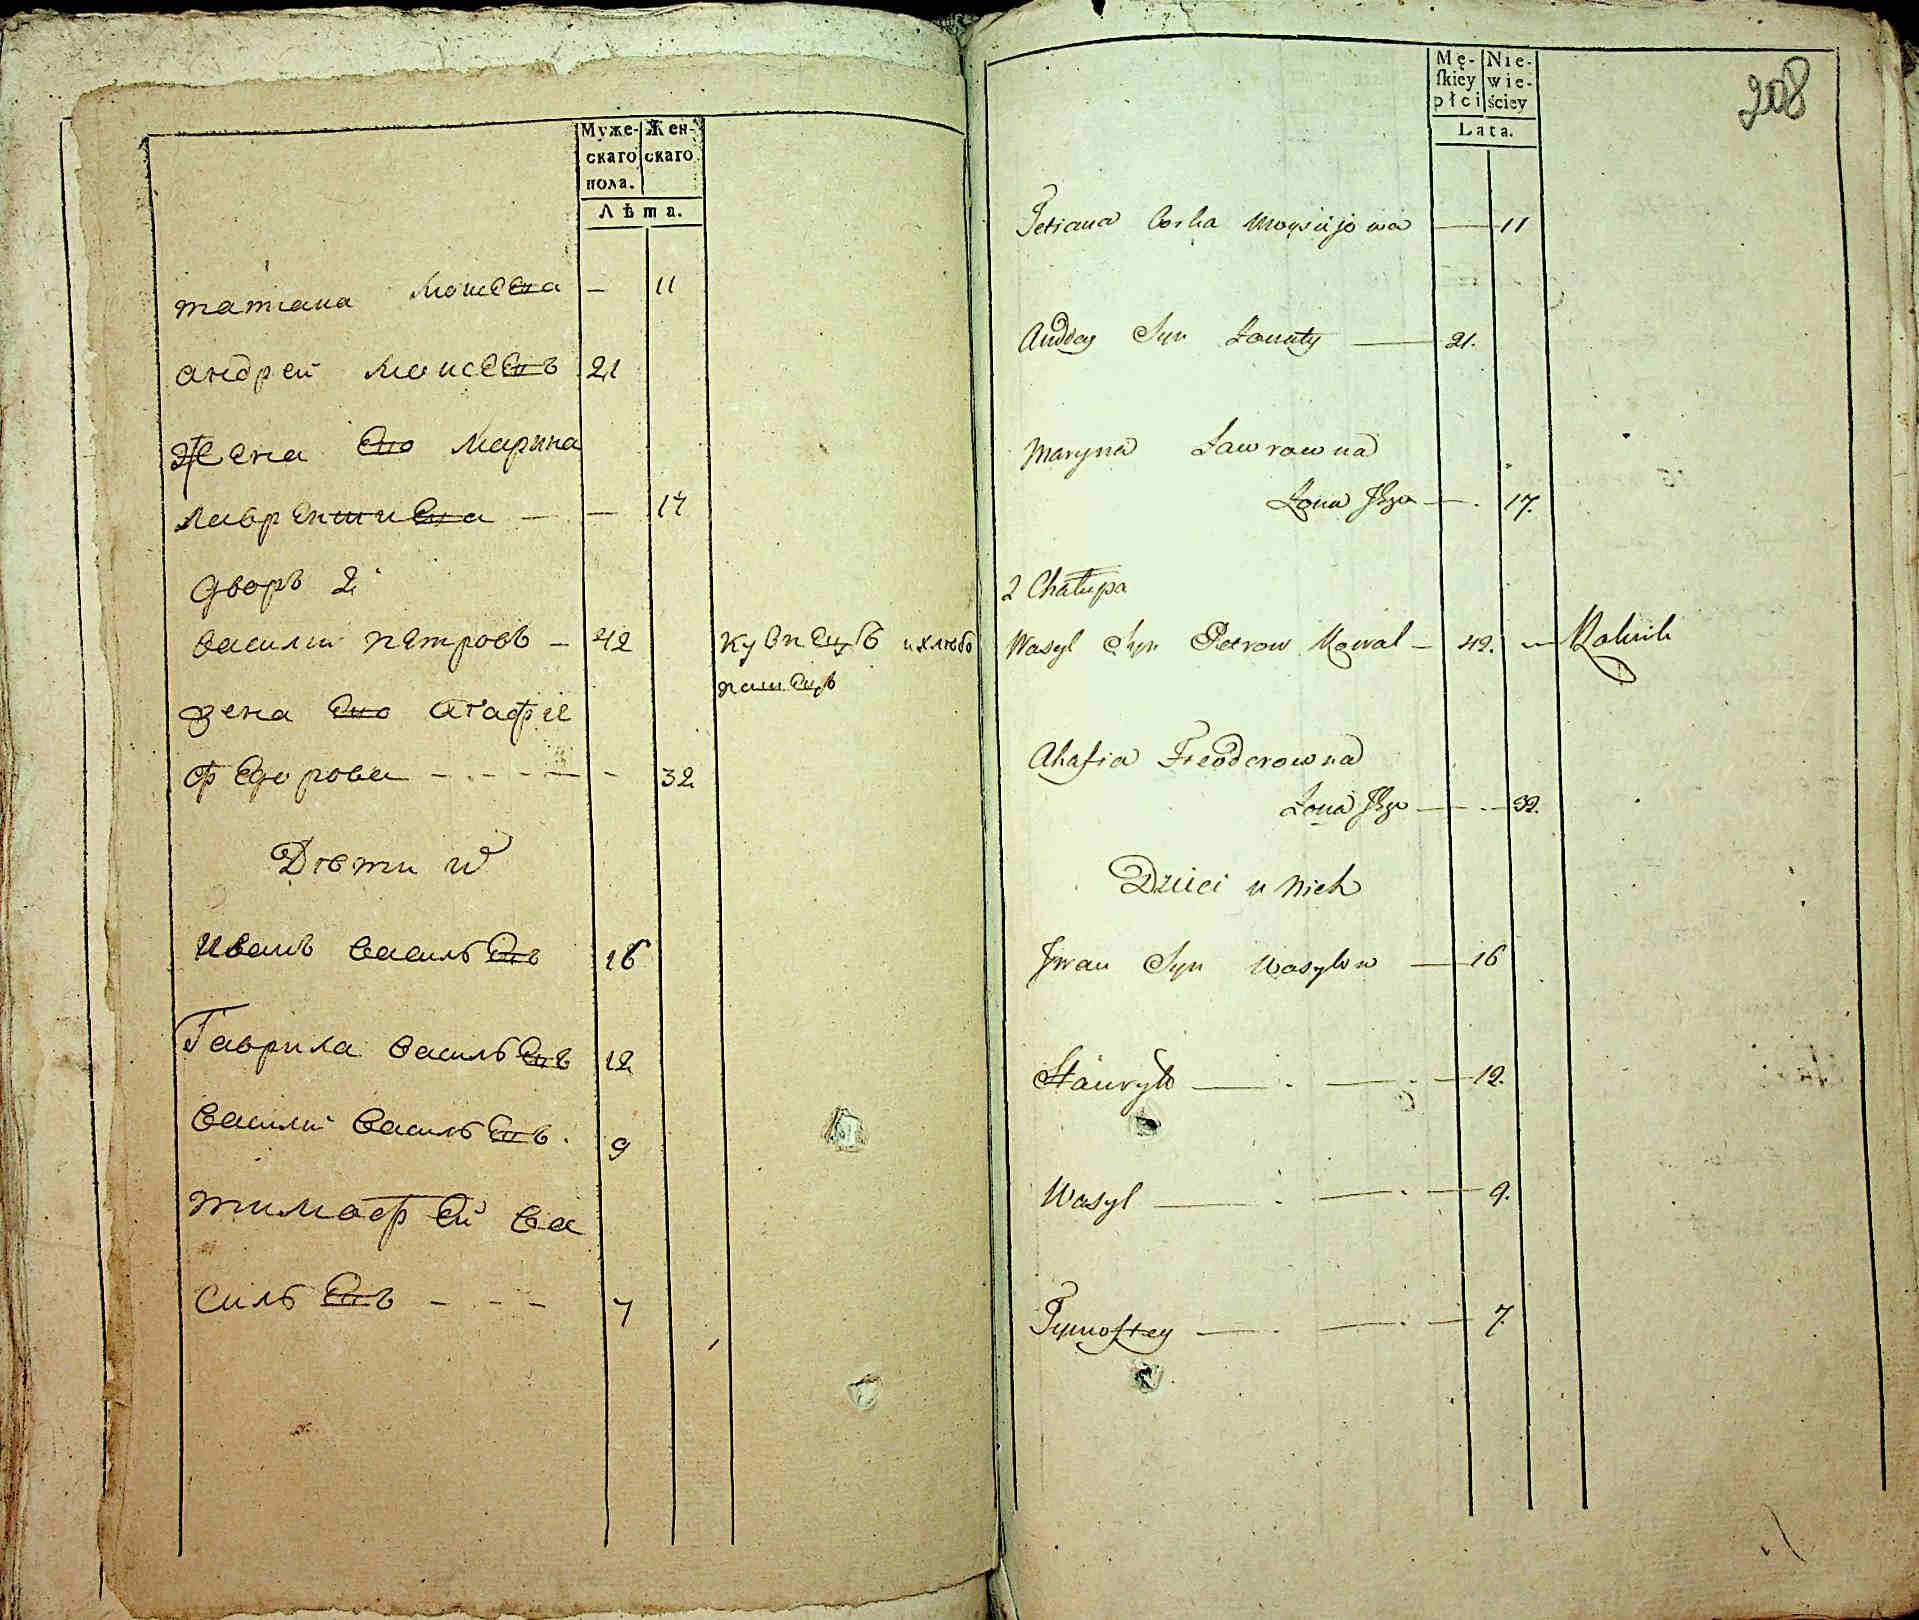 Муже-
скаго
пола.
Жен-
скаго
Лѣта.
татiана Моисеева — 11
андрей Моисеевъ 21
Жена Ево Марина
лаврентиева — — 17
дворъ 2.
василий петровъ — 42 кузнецъ и хлебо
пашецъ
жена Ево агафiе
федорова — - - — - 32
Дѣти ихъ
иванъ васильевъ 16
Гаврила васильевъ 12
василий васильевъ. 9
тимофей ва
сильевъ - - - 7
208
Mę-
skiey
płci
Nie-
wie-
ściey
Lata.
Tetiana Corka Moysiijowa — 11
Andrey Syn — 21.
Maryna Lawrowna
Zona Jego — . 17.
2 Chałupa
Wasyl Syn Petrow Kowal — 42. — Rolnik
Ahafia Freodorowna
Zona Jego — - — 32.
Dzieci u nich
Iwan Syn Wasylow — 16
Hawryło — . — . — 12.
Wasyl — . — . — 9.
Tymoftey — . — . — 7.